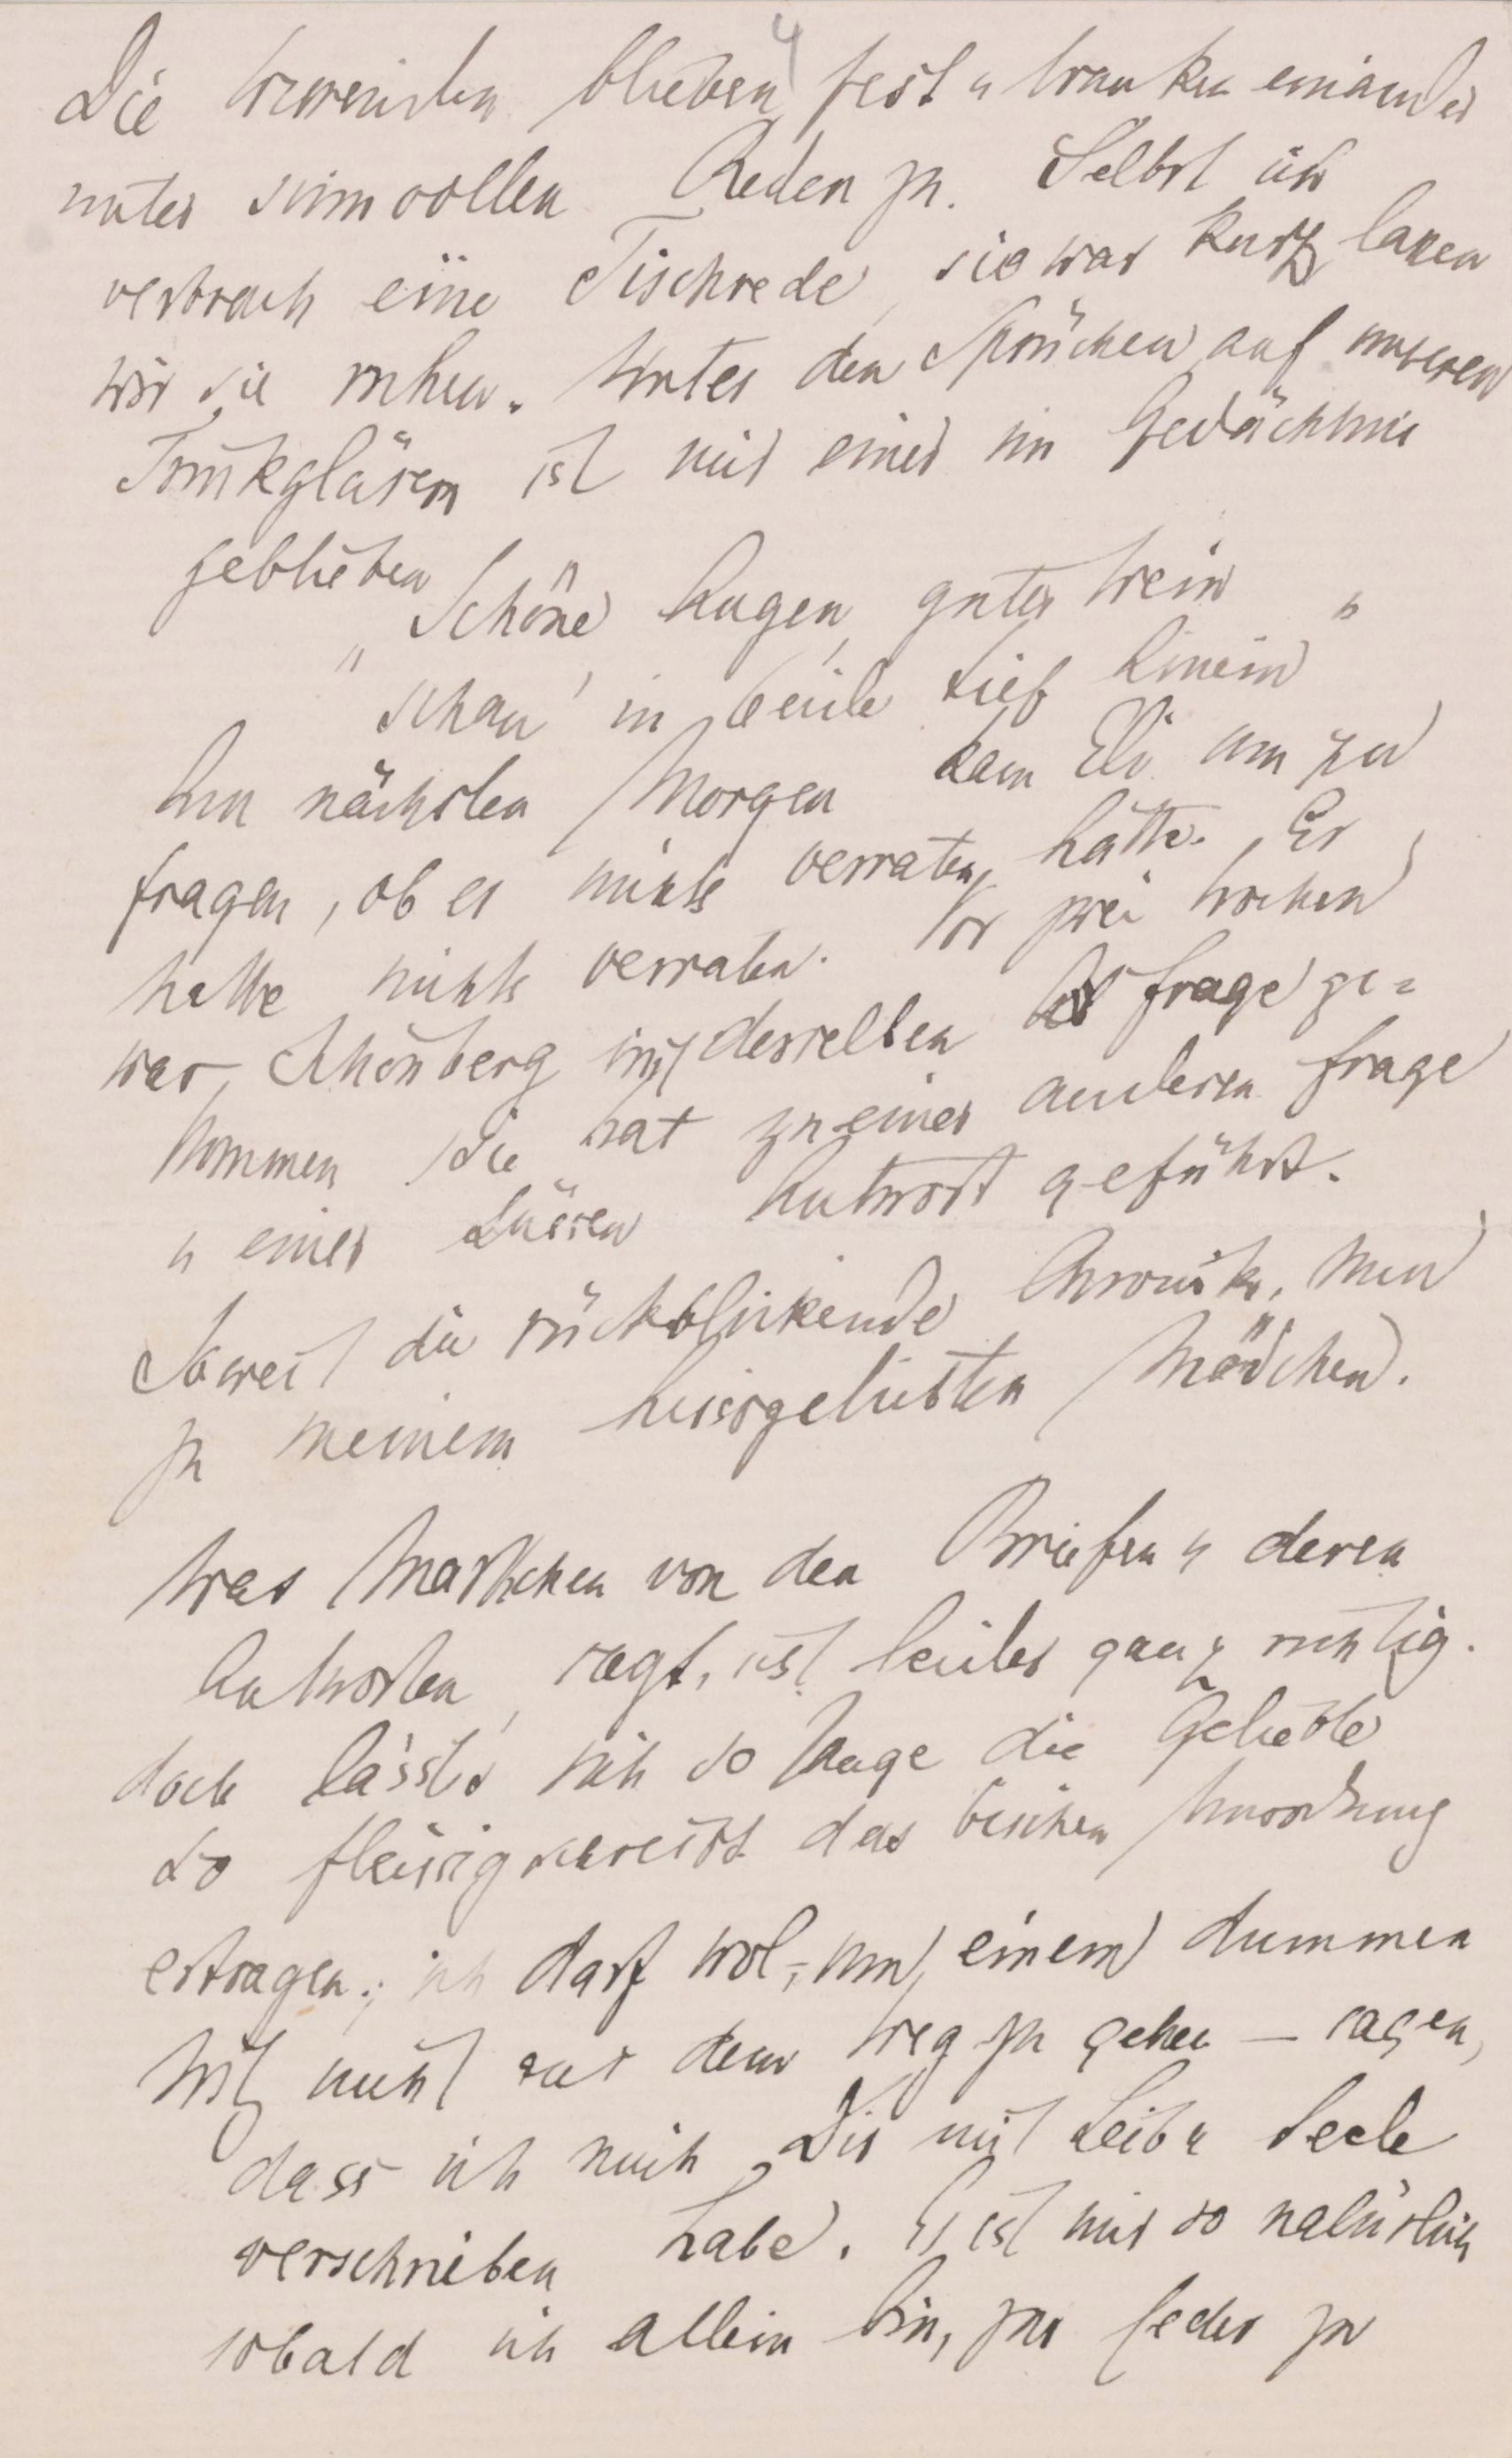 4
Die Anwesenden blieben fest u tranken einander
unter sinnvollen Reden zu. Selbst ich
verbrach eine Tischrede, sie war kurz, lassen
wir sie ruhen. Unter den Sprüchen auf unseren
Trinkgläsern ist mir einer im Gedächtnis
geblieben
„Schöne Augen, guter Wein „
„ schau' in beide tief hinein
Am nächsten Morgen kam Eli um zu
fragen, ob er nichts verraten hätte. Er
hatte nichts verraten. Vor zwei Wochen
war Schönberg mit derselben Frage ge=
kommen, die hat zu einer anderen Frage
u einer süssen Antwort geführt.
Soweit die rückblickende Chronik. Nun
zu meinem heissgeliebten Mädchen.
Was Marthchen von den Briefen u deren
Antworten sagt, ist leider ganz richtig.
doch lässt sich so lange die Geliebte
so fleissig schreibt das bischen Unordnung
ertragen; ich darf wol, – um einem dummen
Witz nicht aus dem Weg zu gehen – sagen,
dass ich mich Dir mit Leib u Seele
verschrieben habe. Es ist mir so natürlich
sobald ich allein bin, zur Feder zu